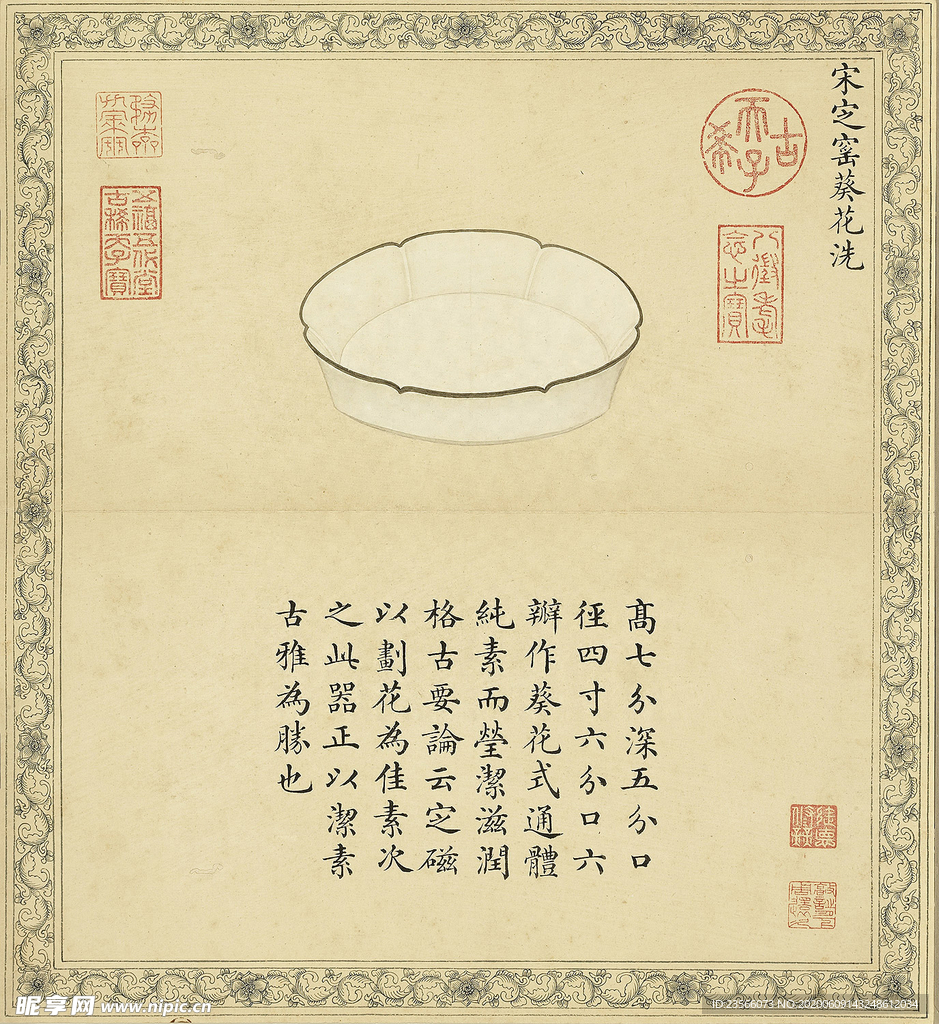 宋㝎窯葵花洗
古希天子
八徵耄念之寶
五福五代堂古稀天子寶
髙七分深五分口
徑四寸六分口六
瓣作葵花式通體
純素而瑩潔滋潤
格古要論云㝎磁
以劃花為佳素次
之此器正以潔素
古雅為勝也
昵享网 www.nipic.cn
ID:23566073 NO:20200609148248612034